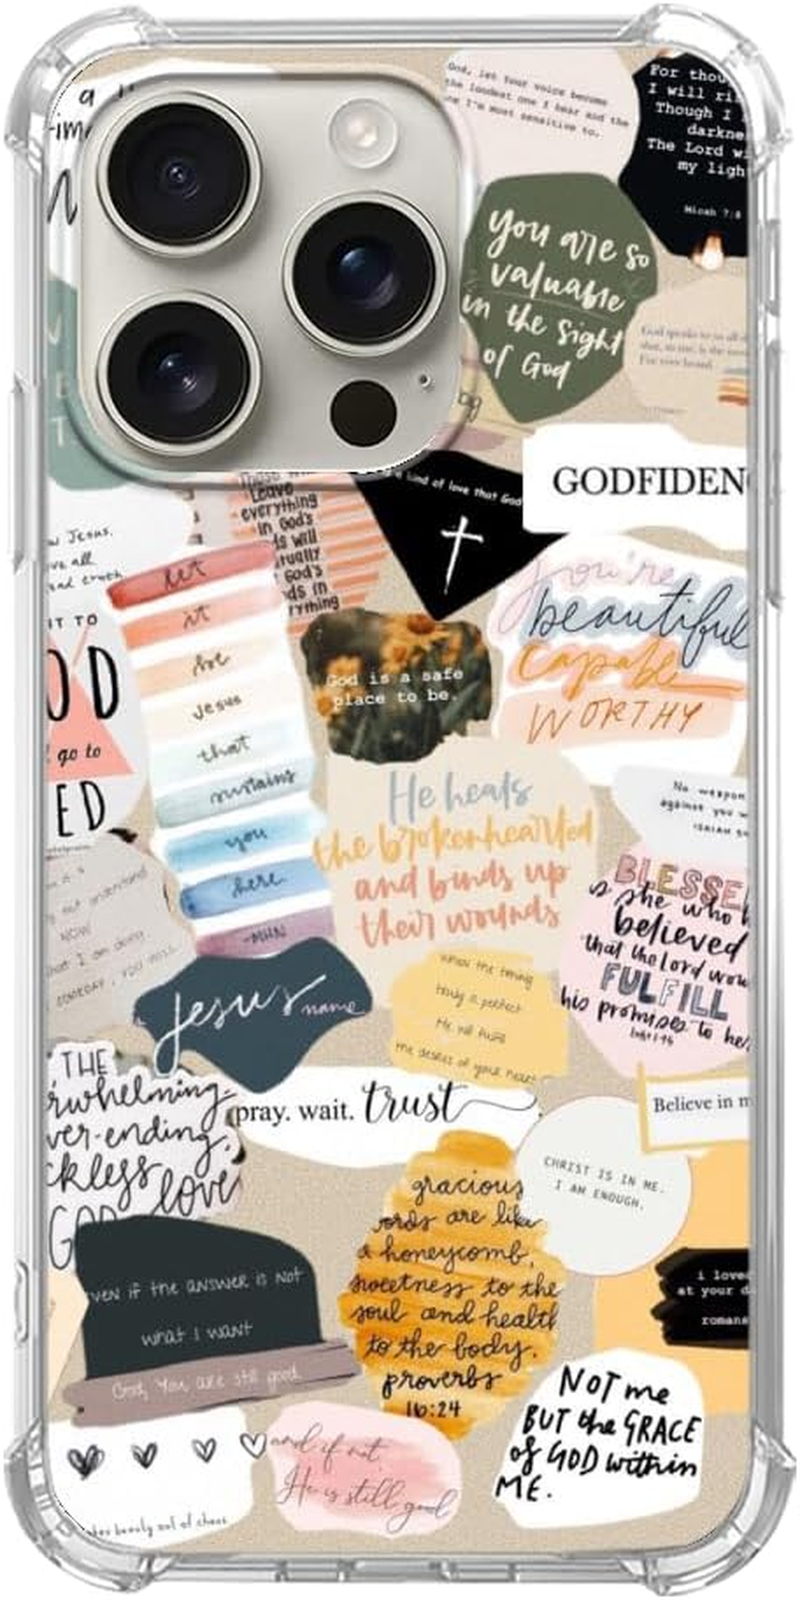 God, let Your voice become
the loudest one I hear and the
one I'm most sensitive to.
For thou
I will ri
Though I
darkne
The Lord w
my ligh
Micah 7:8
you are so
valuable
in the sight
of God
God speaks to us all d
I've ever heard.
GODFIDEN
kind of love that God
Leave
everything
in God's
s will
tually
God's
ds in
rything
w Jesus.
ve all
nd truth
IT TO
OD
go to
ED
let
it
be
Jesus
that
sustains
you
here
-MHN
God is a safe
place to be.
you're
beautiful
capable
WORTHY
He heals
the brokenhearted
and binds up
their wounds
No weapon
against you w
ISAIAH 5
BLESSE
is she who h
believed
that the Lord wou
FULFILL
his promises to he
Luke 1:45
not understand
NOW
at I am doing
SOMEDAY, YOU WILL
Jesus
name
when the timing
truly is perfect
He will fulfill
the desires of your heart
THE
rwhelming
ver-ending
ckless
GOD love
pray. wait. trust
Believe in m
CHRIST IS IN ME.
I AM ENOUGH.
gracious
ords are like
a honeycomb,
sweetness to the
soul and health
to the body.
proverbs
16:24
i love
at your d
romans
ven if the answer is not
what I want
God, You are still good
and if not,
He is still good
NOT me
BUT the GRACE
of GOD within
ME.
kes beauty out of chaos